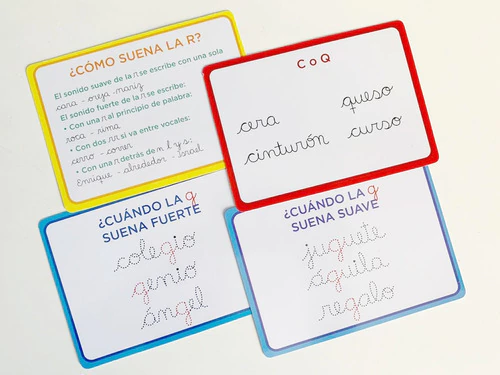 ¿CÓMO SUENA LA R?
El sonido suave de la r se escribe con una sola
cara - oreja - nariz
El sonido fuerte de la r se escribe:
• Con una r al principio de palabra:
roca - rima
• Con dos rr si va entre vocales:
cerro - correr
• Con una r detrás de n l y s:
Enrique - alrededor - Israel
C o Q
cera queso
cinturón curso
¿CUÁNDO LA g
SUENA FUERTE
colegio
genio
ángel
¿CUÁNDO LA g
SUENA SUAVE
juguete
águila
regalo